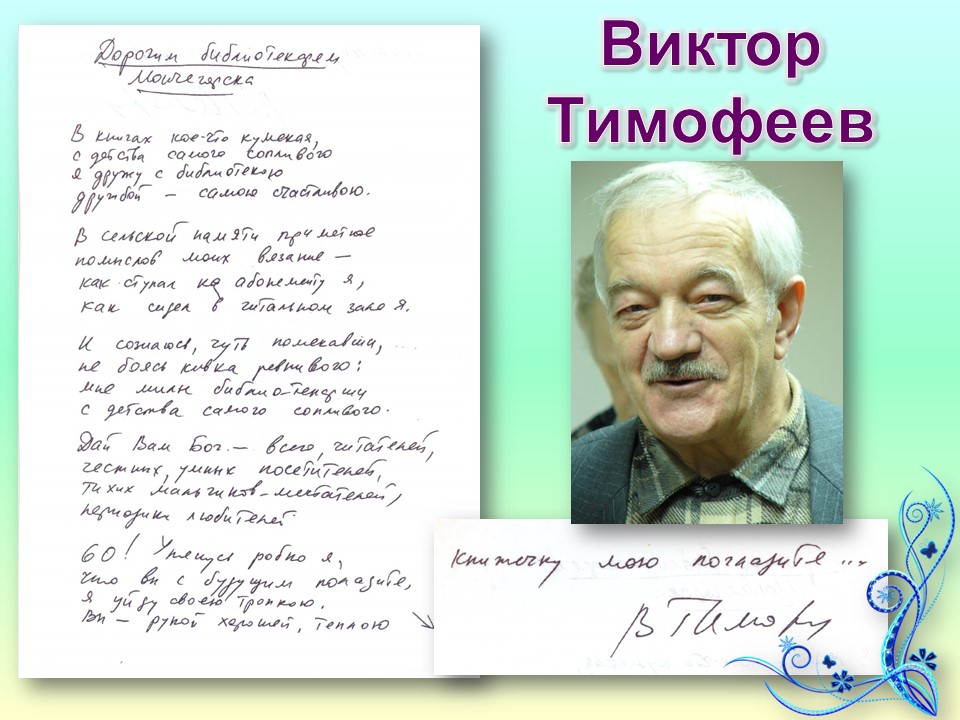 Виктор
Тимофеев
Дорогим библиотекарям
Мончегорска
В книгах кое-что кумекая,
с детства самого сопливого
я дружу с библиотекою
дружбой – самою счастливою.
В сельской памяти приметное
помыслов моих вязание –
как ступал на абонементу я,
как сидел в читальном зале я.
И сознаюсь, чуть помекавши,
не боясь кивка ревнивого:
мне милы библио-текарши
с детства самого сопливого.
Дай Вам Бог – всего, читателей,
честных, умных посетителей,
тихих мальчиков-мечтателей,
периодики любителей
60! Упьюсь робко я,
что вы с будущим поладите,
я уйду своею тропкою.
Вы – рукой хорошей, теплою
книжечку мою погладите...
ВТимоф